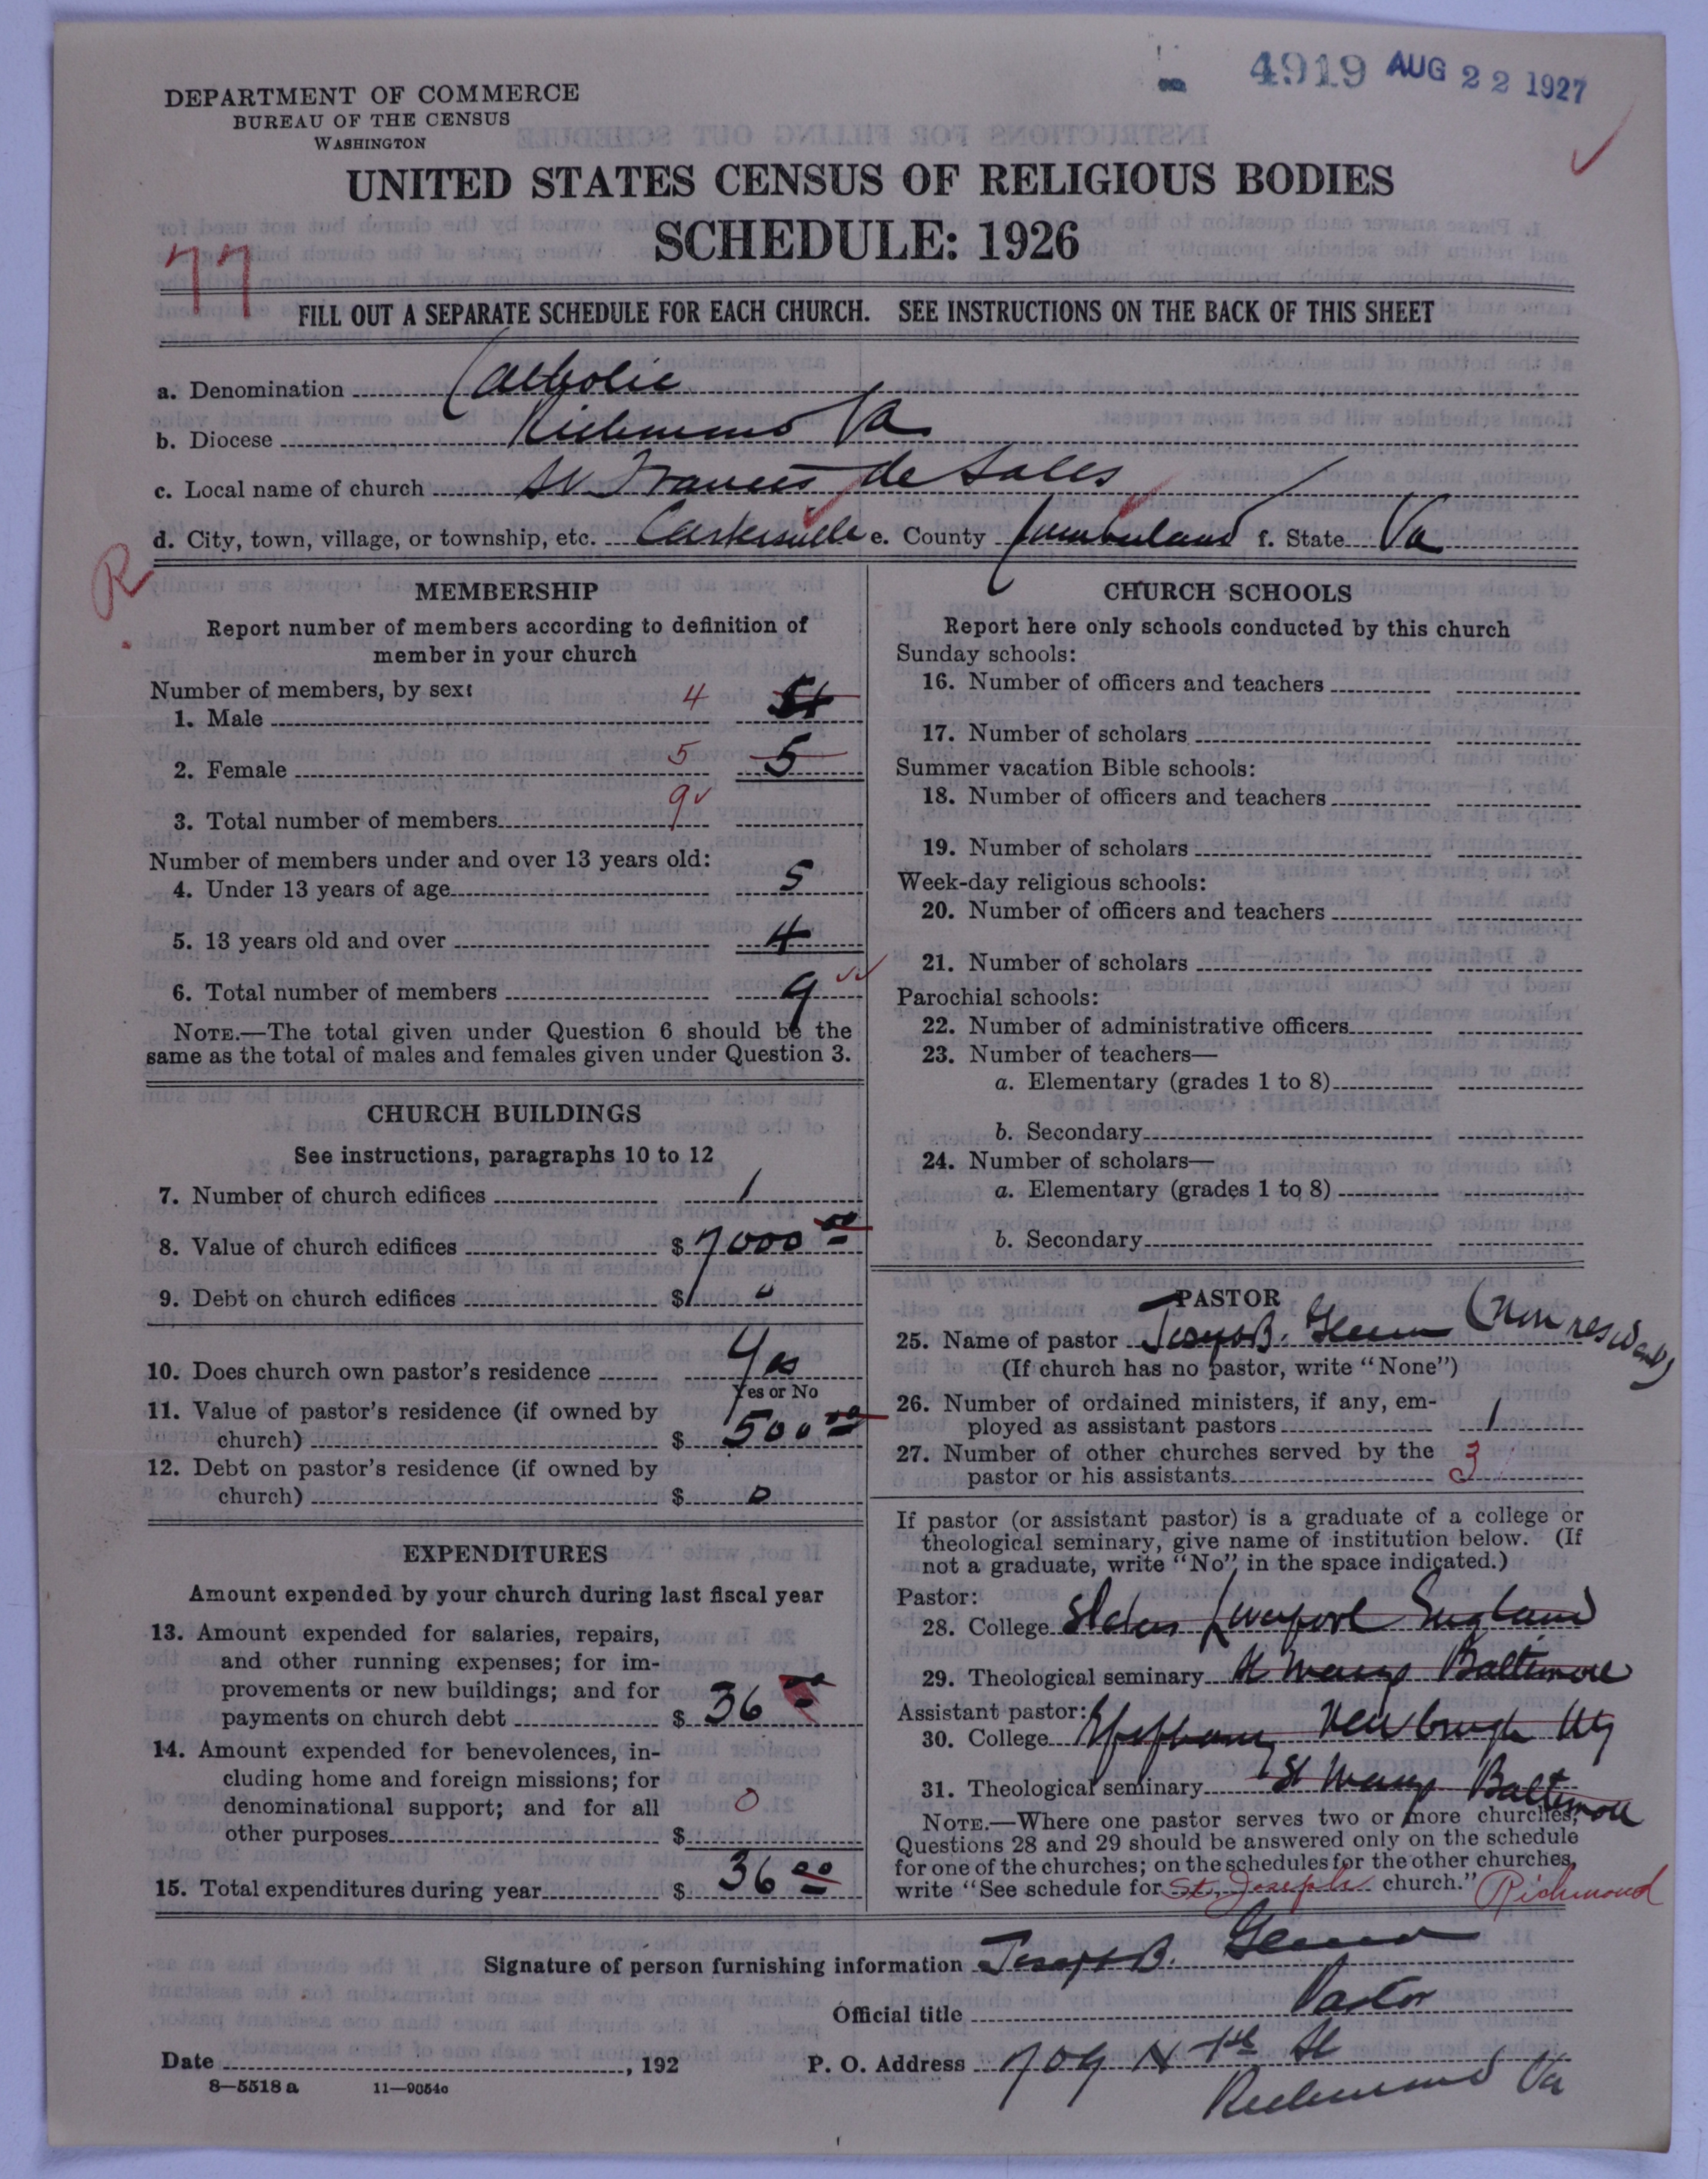 4919 AUG 22 1927
DEPARTMENT OF COMMERCE
BUREAU OF THE CENSUS
WASHINGTON
UNITED STATES CENSUS OF RELIGIOUS BODIES
SCHEDULE: 1926
77
FILL OUT A SEPARATE SCHEDULE FOR EACH CHURCH. SEE INSTRUCTIONS ON THE BACK OF THIS SHEET
a. Denomination Catholic
b. Diocese Richmond Va
c. Local name of church St Francis de Sales
d. City, town, village, or township, etc. Cartersville e. County Cumberland f. State Va
R
MEMBERSHIP
Report number of members according to definition of
member in your church
Number of members, by sex:
1. Male 4
2. Female 5 5
3. Total number of members 9
Number of members under and over 13 years old:
4. Under 13 years of age 5
5. 13 years old and over 4
6. Total number of members 9
NOTE.—The total given under Question 6 should be the
same as the total of males and females given under Question 3.
CHURCH BUILDINGS
See instructions, paragraphs 10 to 12
7. Number of church edifices 1
8. Value of church edifices $ 7000 00
9. Debt on church edifices $ 0
10. Does church own pastor's residence Yes
Yes or No
11. Value of pastor's residence (if owned by
church) $ 500 00
12. Debt on pastor's residence (if owned by
church) $ 0
EXPENDITURES
Amount expended by your church during last fiscal year
13. Amount expended for salaries, repairs,
and other running expenses; for im-
provements or new buildings; and for
payments on church debt $ 36 00
14. Amount expended for benevolences, in-
cluding home and foreign missions; for
denominational support; and for all
other purposes $ 0
15. Total expenditures during year $ 36 00
CHURCH SCHOOLS
Report here only schools conducted by this church
Sunday schools:
16. Number of officers and teachers
17. Number of scholars
Summer vacation Bible schools:
18. Number of officers and teachers
19. Number of scholars
Week-day religious schools:
20. Number of officers and teachers
21. Number of scholars
Parochial schools:
22. Number of administrative officers
23. Number of teachers—
a. Elementary (grades 1 to 8)
b. Secondary
24. Number of scholars—
a. Elementary (grades 1 to 8)
b. Secondary
PASTOR
25. Name of pastor Joseph B. Glenn (Non resident)
(If church has no pastor, write "None")
26. Number of ordained ministers, if any, em-
ployed as assistant pastors 1
27. Number of other churches served by the
pastor or his assistants 3
If pastor (or assistant pastor) is a graduate of a college or
theological seminary, give name of institution below. (If
not a graduate, write "No" in the space indicated.)
Pastor:
28. College Liverpool England
29. Theological seminary St Marys Baltimore
Assistant pastor:
30. College Epiphany Newburgh NY
31. Theological seminary St Marys Baltimore
NOTE.—Where one pastor serves two or more churches,
Questions 28 and 29 should be answered only on the schedule
for one of the churches; on the schedules for the other churches,
write "See schedule for St. Joseph church." Richmond
Signature of person furnishing information Joseph B. Glenn
Official title Pastor
Date , 192
P. O. Address 709 N 1st St
Richmond Va
8—5518 a 11—9054c